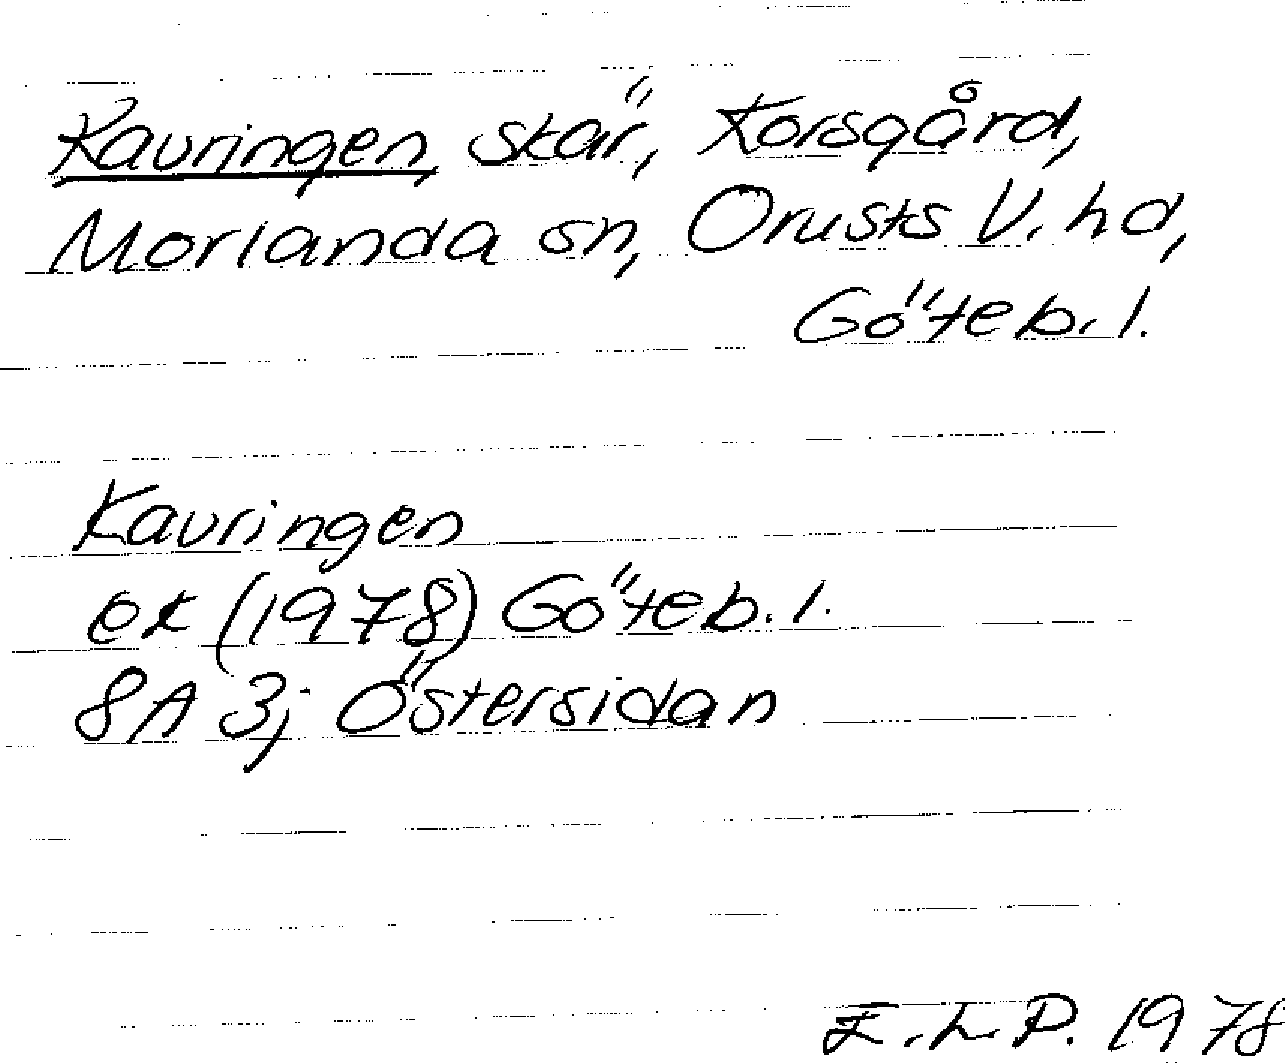 Kavringen, skär, Korsgård,
Morlanda sn, Orusts V. hd,
Göteb. l.
Kavringen
ek (1978) Göteb. l.
8A 3j Östersidan
E.L.P. 1978